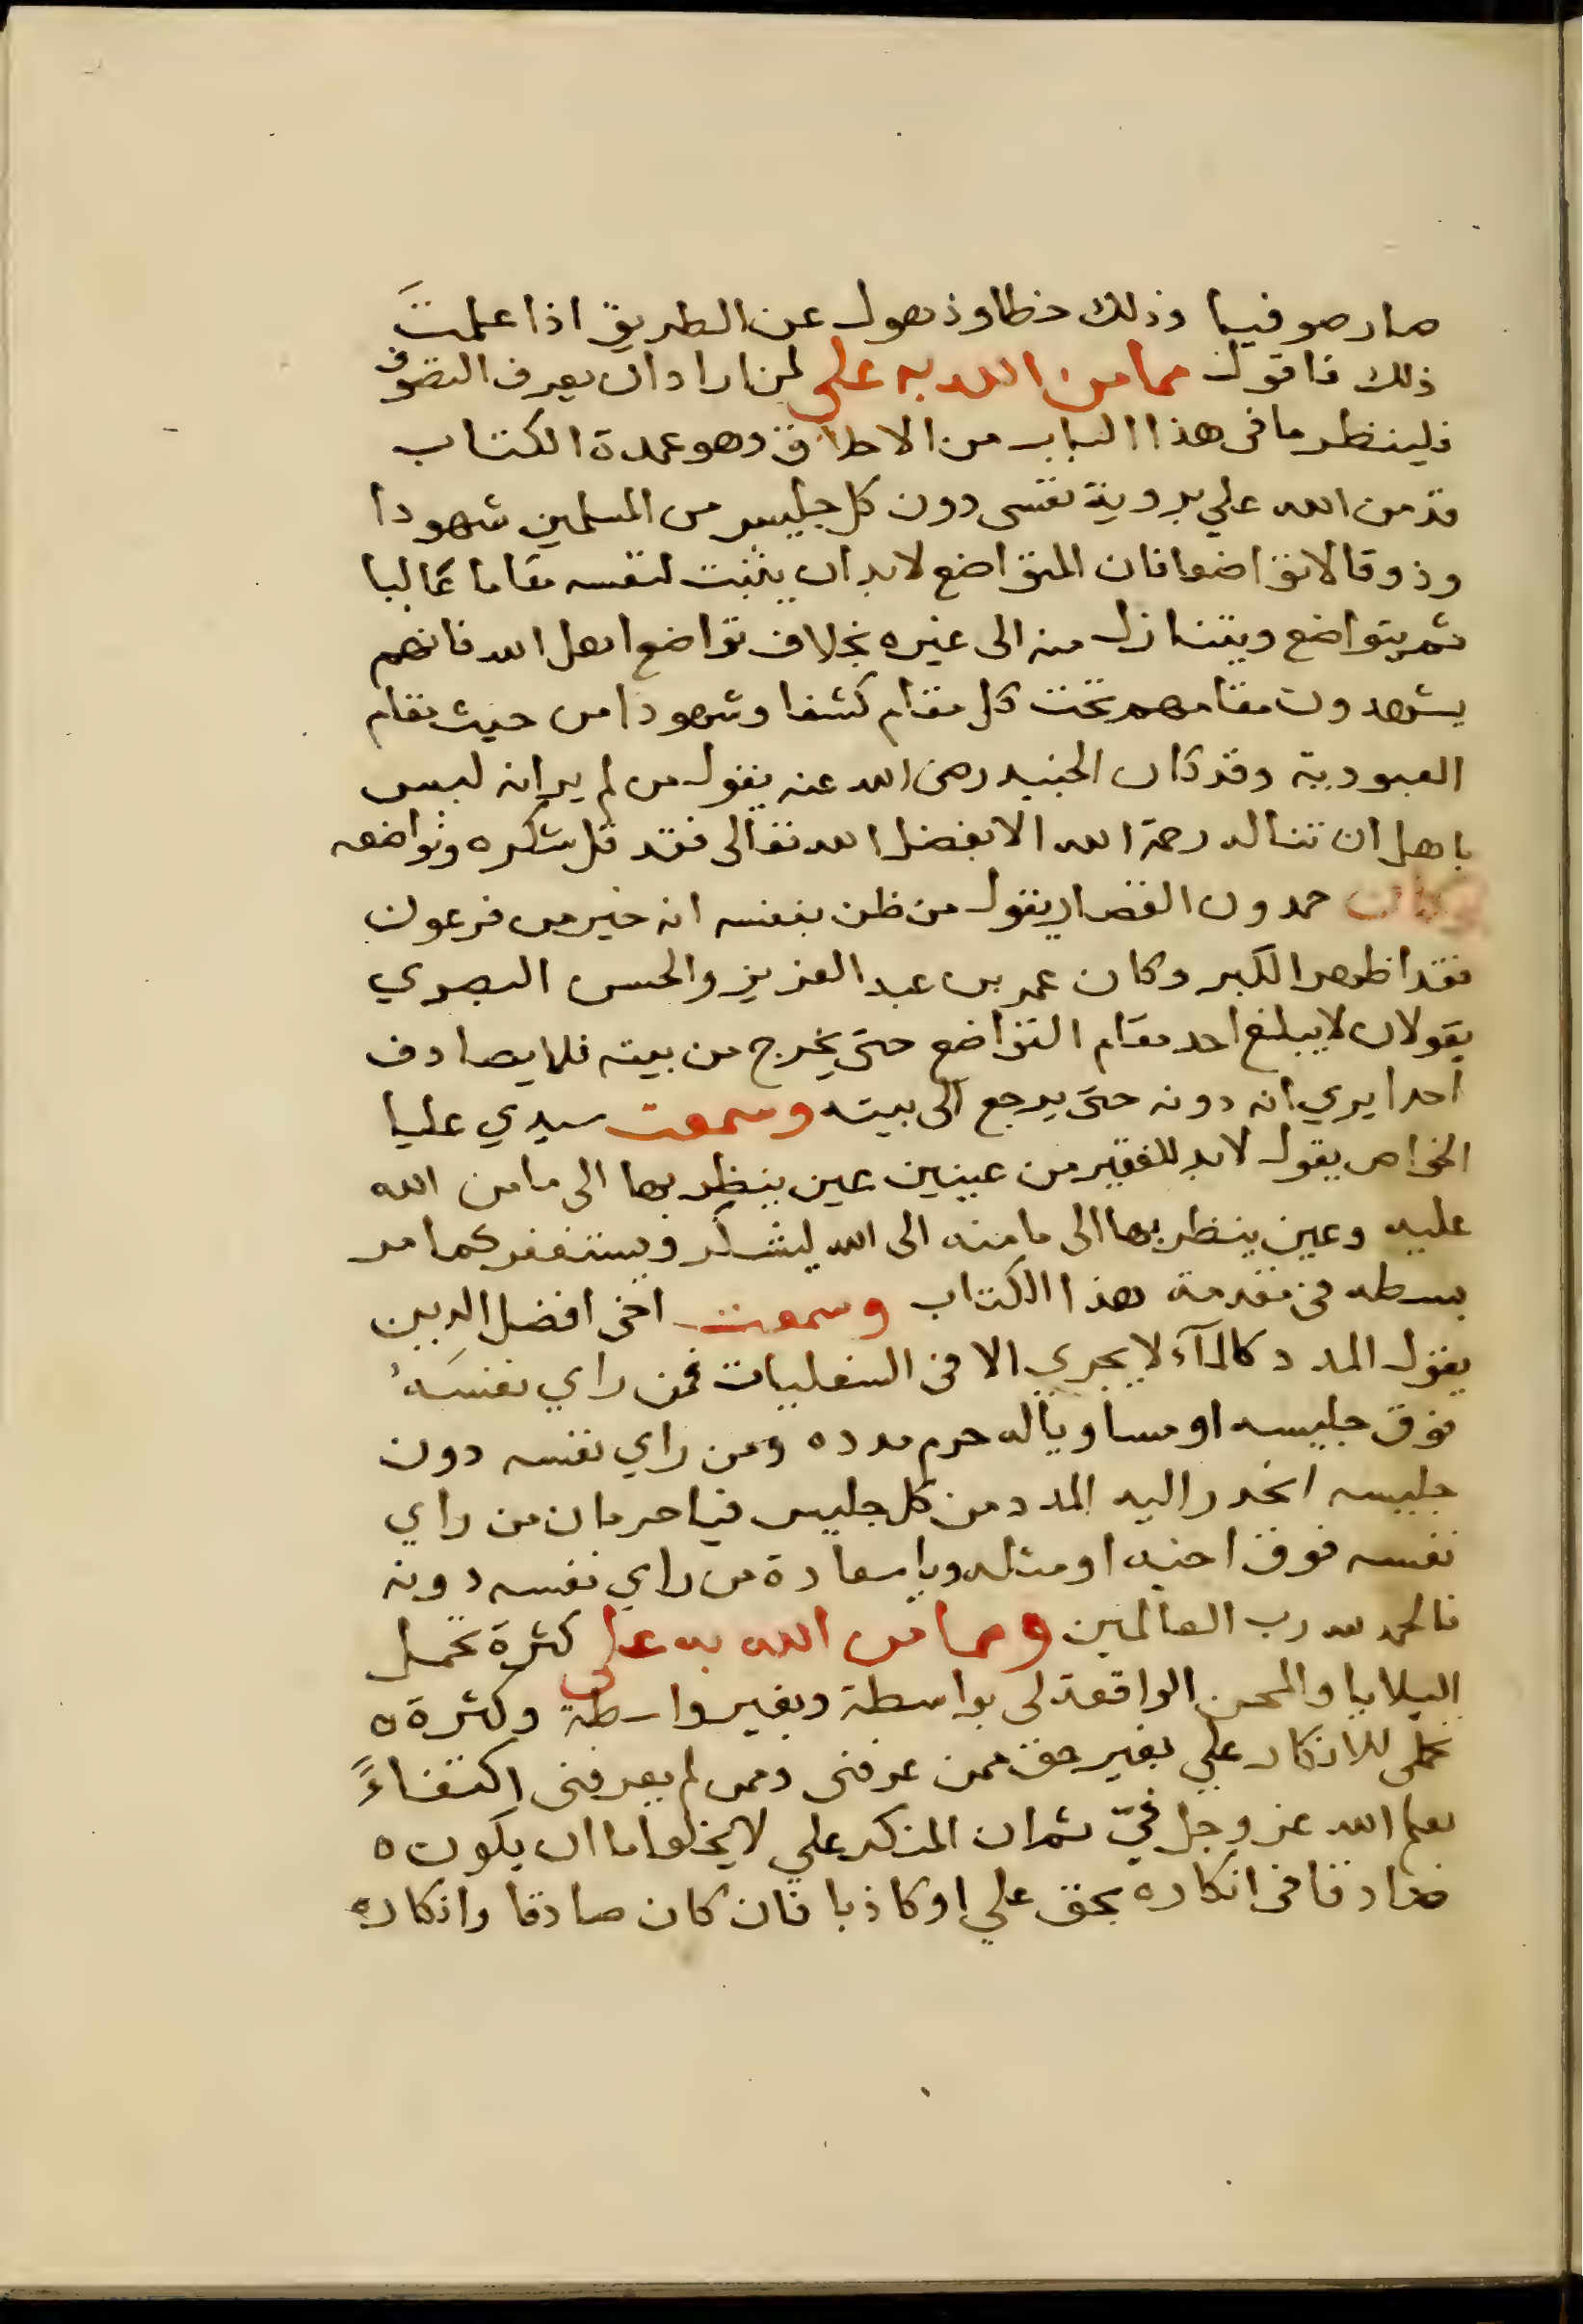 صار صوفيا وذلك خطا وذهول عن الطريق اذا علمتَ
ذلك فاقول مما من الله به علي لمن اراد ان يعرف التصوف
فلينظر ما في هذا الباب من الاخلاق وهو عمدة الكتاب
قد من الله علي بروية نفسى دون كل جليس من المسلمين شهودا
وذوقا لا تواضعا فان المتواضع لا بد ان يثبت لنفسه مقاما عاليا
ثم يتواضع ويتنازل منه الى غيره بخلاف تواضع اهل الله فانهم
يشهدون مقامهم تحت كل مقام كشفا وشهودا من حيث مقام
العبودية وقد كان الجنيد رضى الله عنه يقول من لم ير انه ليس
باهل ان تناله رحمة الله الا بفضل الله تعالى فقد قل شكره وتواضعه
وكان حمدون القصار يقول من ظن بنفسه انه خير من فرعون
فقد اظهر الكبر وكان عمر بن عبد العزيز والحسن البصري
يقولان لا يبلغ احد مقام التواضع حتى يخرج من بيته فلا يصادف
احدا يري انه دونه حتى يرجع الى بيته وسمعت سيدي عليا
الخواص يقول لا بد للفقير من عينين عين ينظر بها الى ما من الله
عليه وعين ينظر بها الى ما منه الى الله ليشكر ويستغفر كما مر
بسطه في مقدمة هذا الكتاب وسمعت اخى افضل الدين
يقول المدد كالمآء لا يجري الا في السفليات فمن راي نفسَهُ
فوق جليسه او مساويا له حرم مدده ومن راي نفسه دون
جليسه انحدر اليه المدد من كل جليس فيا حرمان من راي
نفسه فوق اخيه او مثله ويا سعادة من راي نفسه دونه
فالحمد لله رب العالمين ومما من الله به علي كثرة تحمل
البلايا والمحن الواقعة لى بواسطة وبغير واسطة وكثرة ه
تحملى للانكار علي بغير حق ممن عرفنى وممن لم يعرفنى اكتفاءً
بعلم الله عز وجل فيّ ثم ان المنكر علي لا يخلو اما ان يكون ه
صادقا في انكاره بحق علي او كاذبا فان كان صادقا وانكاره